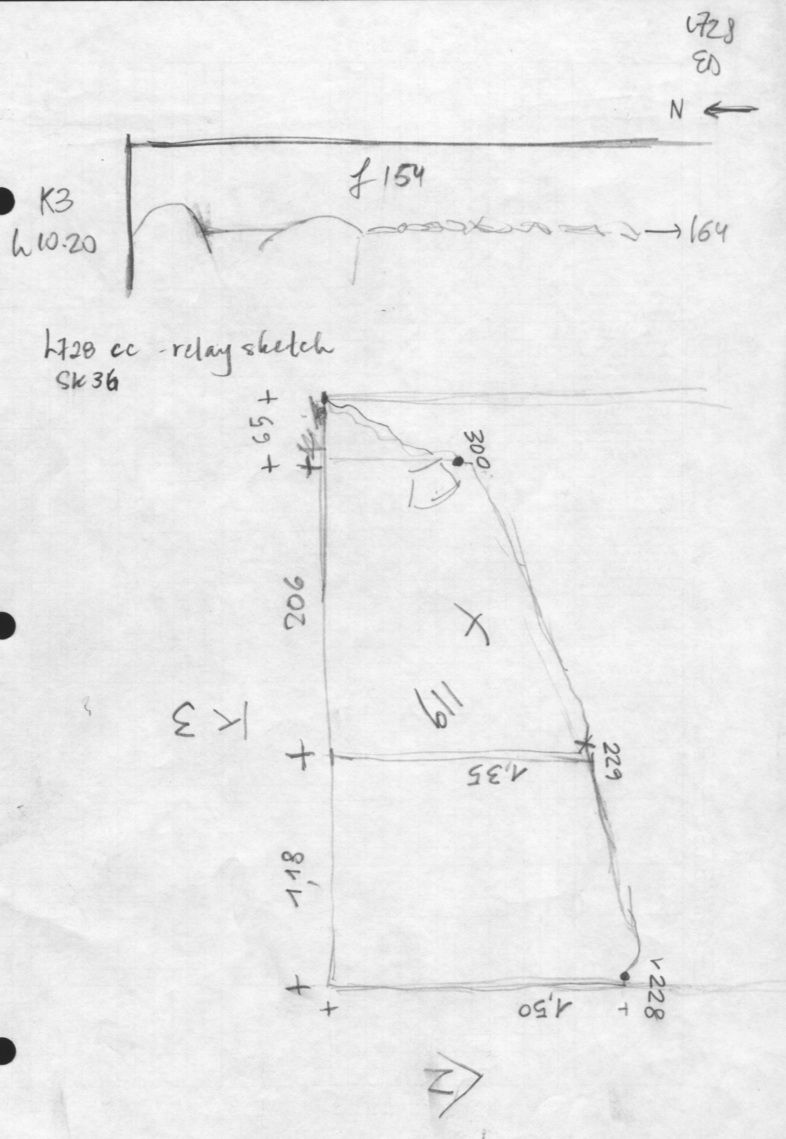 L728
ED
N
f 154
K3
h 10.20
→ 164
L728 cc - relay sketch
SK36
+ 59 +
300
206
X
119
K3
229
1,35
1,18
v 228
1,50
N